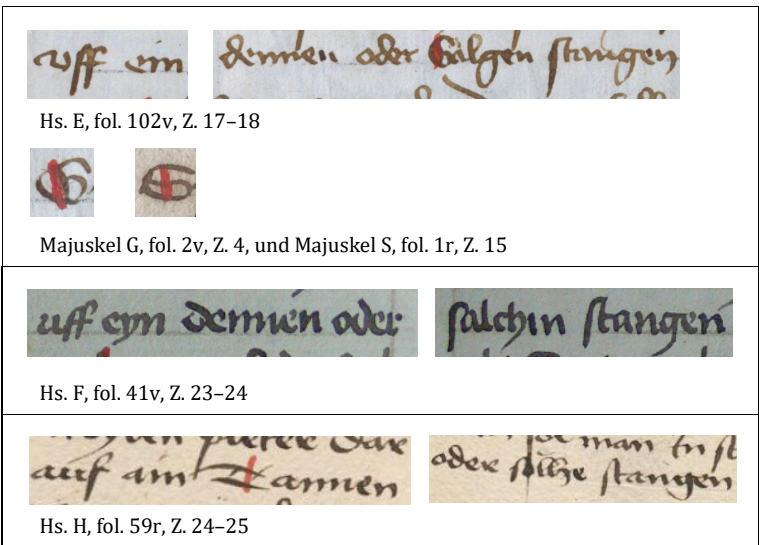 vff ein dennen oder Galgen stangen
Hs. E, fol. 102v, Z. 17–18
G S
Majuskel G, fol. 2v, Z. 4, und Majuskel S, fol. 1r, Z. 15
uff eyn dennen oder salchin stangen
Hs. F, fol. 41v, Z. 23–24
dar
auf ain Tannen oder sölhe stangen
Hs. H, fol. 59r, Z. 24–25